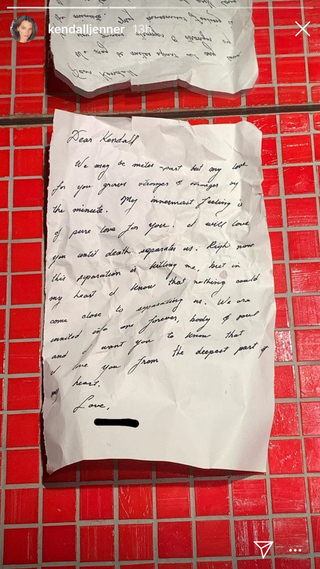 kendalljenner 13h
Dear Kendall
We may be miles apart but my love
for you grows stronger & stronger by
the minute. My innermost feeling is
of pure love for you. I will love
you until death separates us. Right now
this separation is killing me, but in
my heart I know that nothing could
come close to separating us. We are
united into one forever, body & soul
and I want you to know that
I love you from the deepest part of
my heart.
Love,